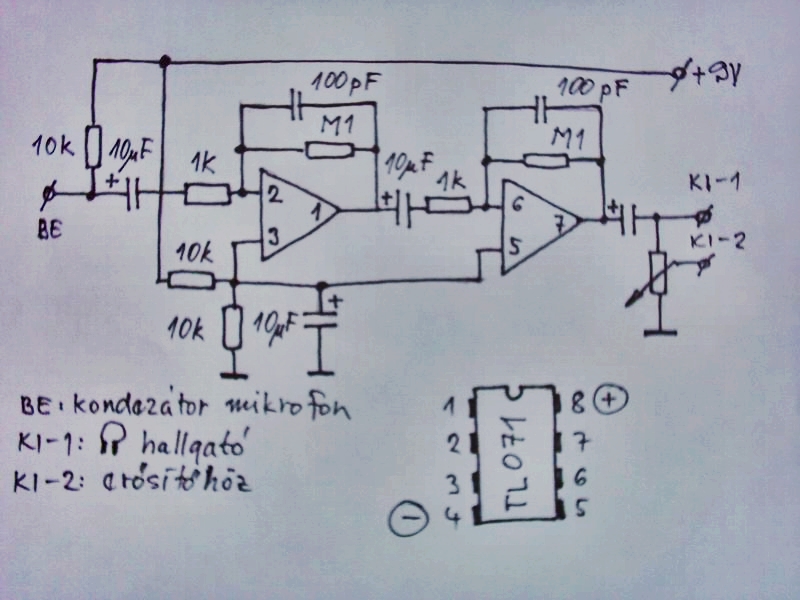 100pF
100pF
+9V
M1
M1
10k
10µF
1k
10µF
1k
KI-1
BE
2
1
6
7
KI-2
3
5
10k
10k
10µF
BE: kondezátor mikrofon
KI-1: hallgató
KI-2: erősítőhöz
1 8 +
2 7
3 6
- 4 5
TL071